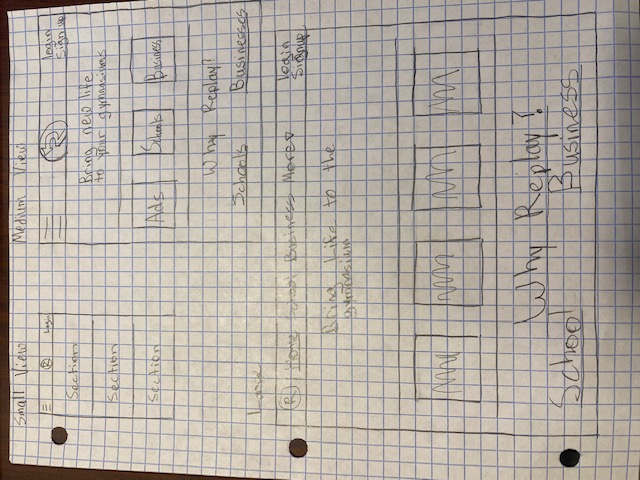 Small View
® Login
Section
Section
Section
Medium View
R
login
Sign up
Bring new life
to your gymnasiums
Ads Schools Business
Why Replay?
Schools Businesses
Large
® Home School Business More▽
login
Signup
Bring Life to the
gymnasium
Why Replay?
School Business